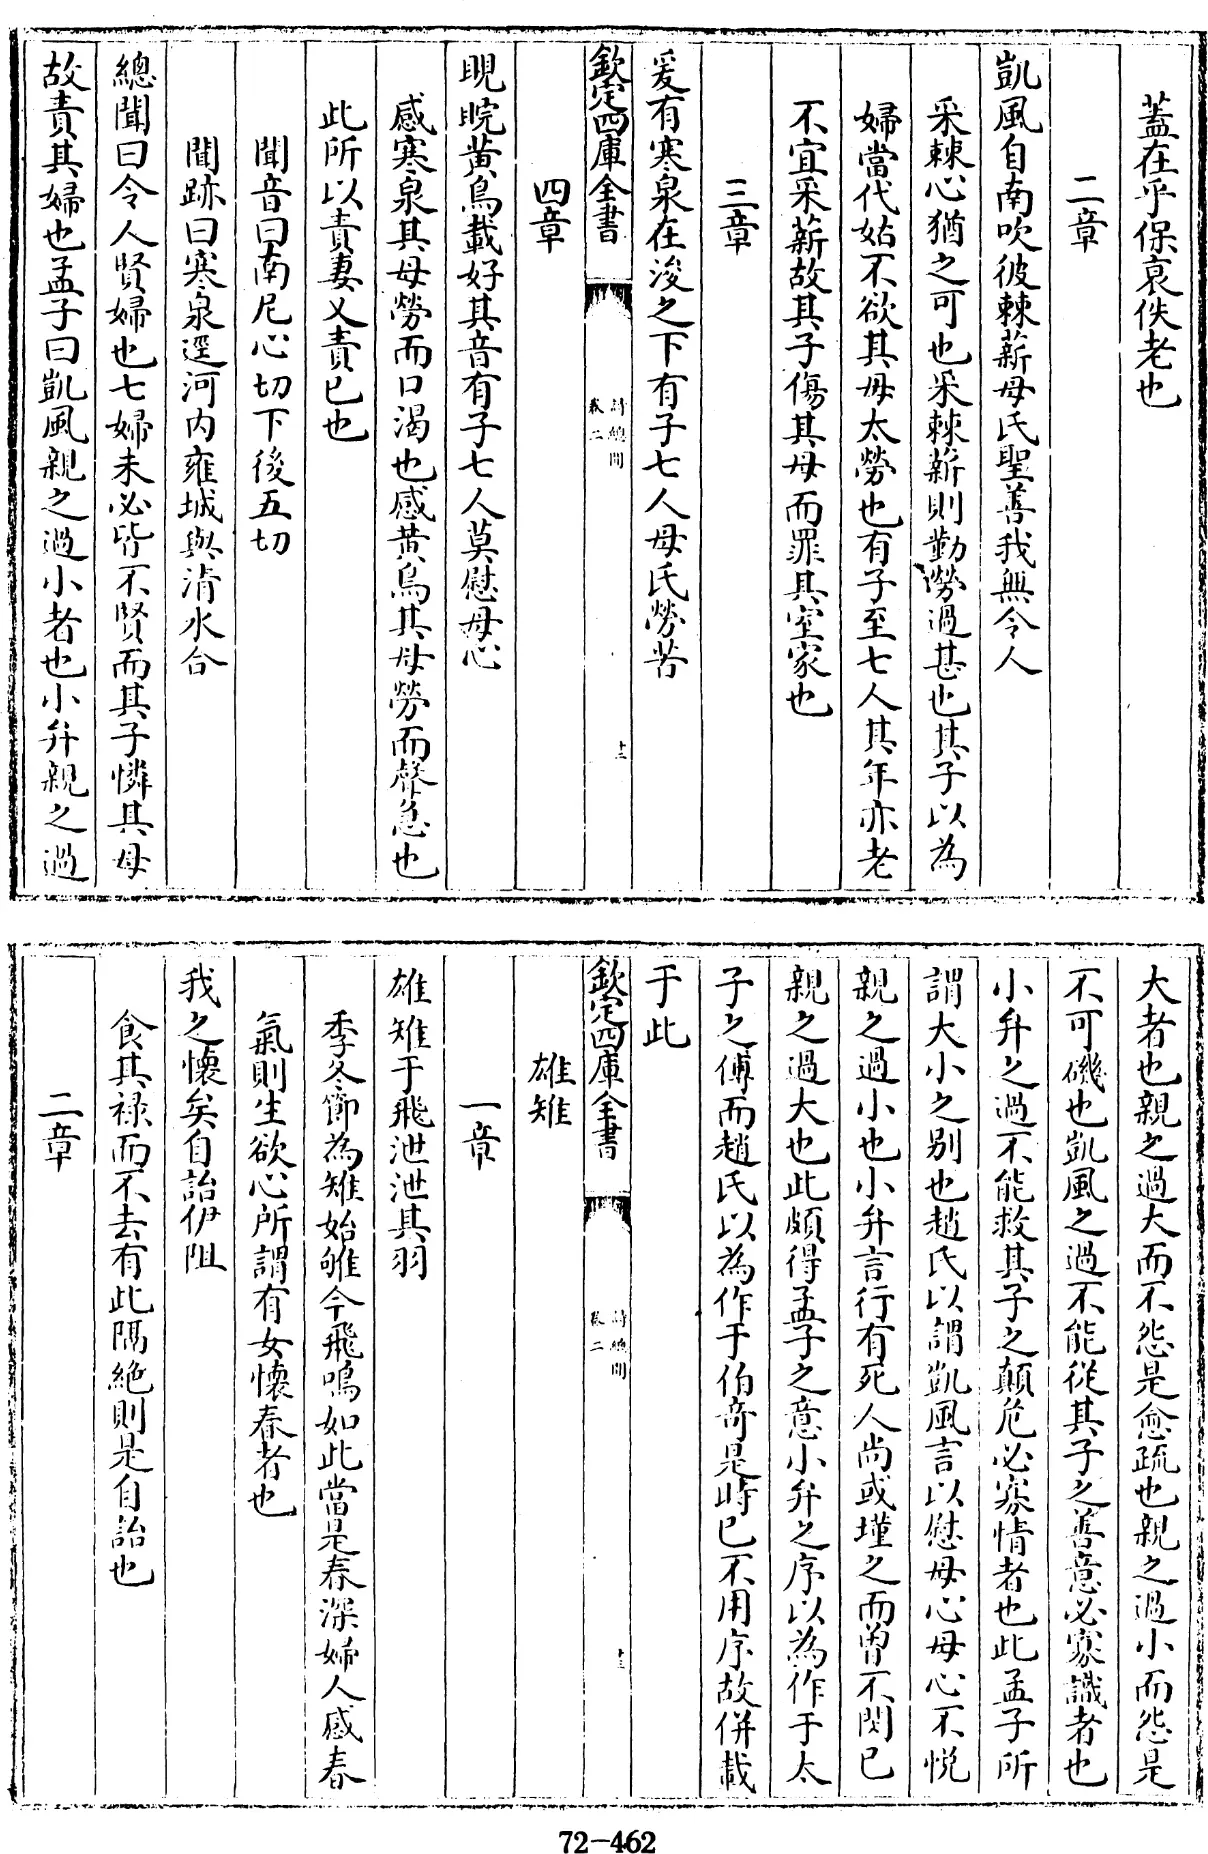 蓋在乎保哀佚老也
二章
凱風自南吹彼棘薪母氏聖善我無令人
采棘心猶之可也采棘薪則勤勞過甚也其子以為
婦當代姑不欲其母太勞也有子至七人其年亦老
不宜采薪故其子傷其母而罪其室家也
三章
爰有寒泉在浚之下有子七人母氏勞苦
欽定四庫全書
詩總聞
卷二
十二
四章
睍睆黃鳥載好其音有子七人莫慰母心
感寒泉其母勞而口渴也感黃鳥其母勞而聲急也
此所以責妻又責己也
聞音曰南尼心切下後五切
聞跡曰寒泉逕河內雍城與清水合
總聞曰令人賢婦也七婦未必皆不賢而其子憐其母
故責其婦也孟子曰凱風親之過小者也小弁親之過
大者也親之過大而不怨是愈疏也親之過小而怨是
不可磯也凱風之過不能從其子之善意必寡識者也
小弁之過不能救其子之顛危必寡情者也此孟子所
謂大小之別也趙氏以謂凱風言以慰母心母心不悅
親之過小也小弁言行有死人尚或墐之而曾不閔己
親之過大也此頗得孟子之意小弁之序以為作于太
子之傅而趙氏以為作于伯奇是時已不用序故併載
于此
欽定四庫全書
詩總聞
卷二
十三
雄雉
一章
雄雉于飛泄泄其羽
季冬節為雉始雊今飛鳴如此當是春深婦人感春
氣則生欲心所謂有女懷春者也
我之懷矣自詒伊阻
食其祿而不去有此隔絕則是自詒也
二章
72-462